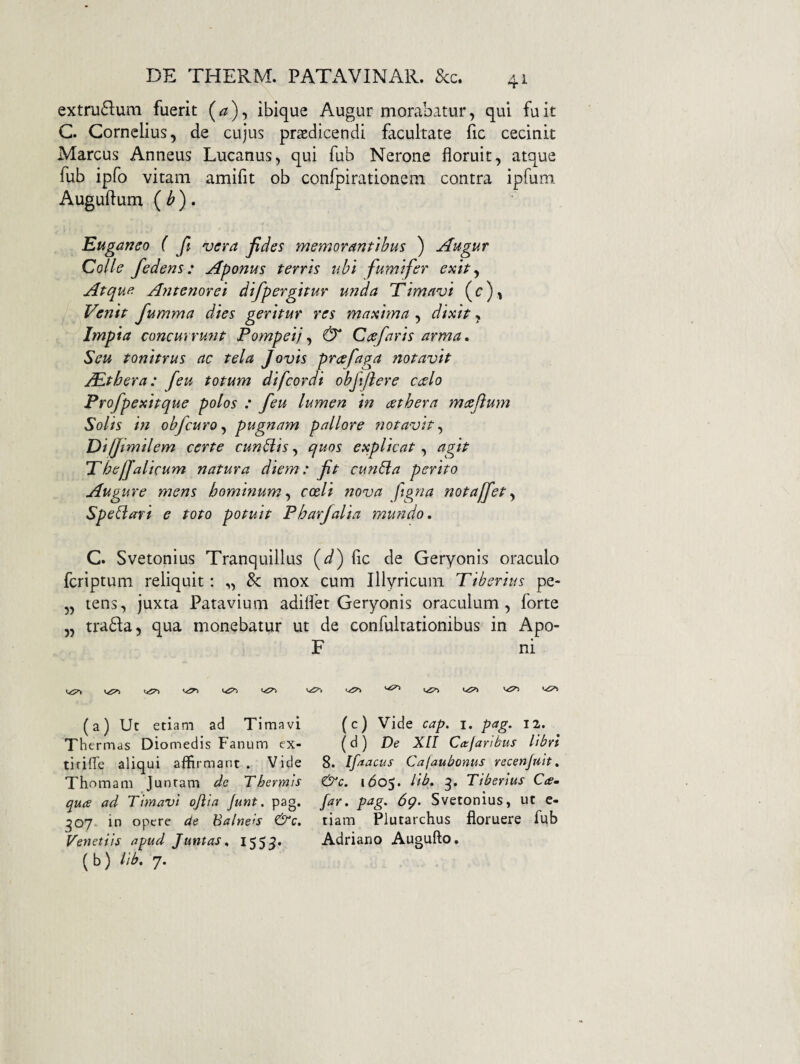 DE THERM. PATAVINAR. &c. 41
extructum fuerit (a), ibique Augur morabatur, qui fuit
C. Cornelius, de cujus prædicendi facultate ſic cecinit
Marcus Anneus Lucanus, qui ſub Nerone floruit, atque
ſub ipſo vitam amiſit ob conſpirationem contra ipſum
Auguſtum (b).
Euganeo ( ſi vera fides memorantibus ) Augur
Colle ſedens: Aponus terris ubi fumifer exit,
Atque Antenorei diſpergitur unda Timavi (c),
Venit ſumma dies geritur res maxima, dixit,
Impia concurrunt Pompeij, & Cæſaris arma.
Seu tonitrus ac tela Jovis præſaga notavit
Æthera: ſeu totum diſcordi obſiſtere cælo
Proſpexitque polos : ſeu lumen in æthera mæſtum
Solis in obſcuro, pugnam pallore notavit,
Diſſimilem certe cunctis, quos explicat, agit
Theſſalicum natura diem: ſit cuncta perito
Augure mens hominum, cœli nova ſigna notaſſet,
Spectari e toto potuit Pharſalia mundo.
C. Svetonius Tranquillus (d) ſic de Geryonis oraculo
ſcriptum reliquit: „ & mox cum Illyricum Tiberius pe-
„ tens, juxta Patavium adiſſet Geryonis oraculum, ſorte
„ tracta, qua monebatur ut de conſultationibus in Apo-
F ni
(a) Ut etiam ad Timavi
Thermas Diomedis Fanum ex-
titiſſe aliqui affirmant. Vide
Thomam Juntam de Thermis
quæ ad Timavi oſtia ſunt. pag.
307. in opere de Balneis &c.
Venetiis apud Juntas. 1553.
(b) lib. 7.
(c) Vide cap. 1. pag. 12.
(d) De XII Cæſaribus libri
8. Iſaacus Caſaubonus recenſuit.
&c. 1605. lib. 3. Tiberius Cæ-
ſar. pag. 69. Svetonius, ut e-
tiam Plutarchus floruere ſub
Adriano Auguſto.